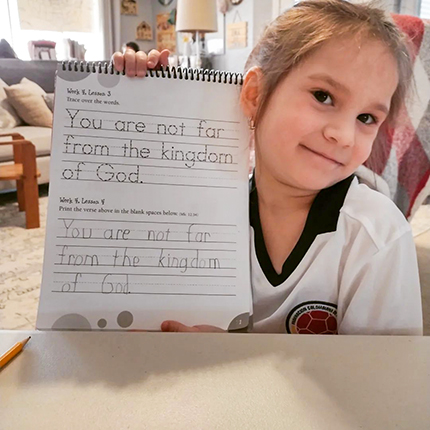 Week 8, Lesson 3
Trace over the words.
You are not far
from the kingdom
of God.
Week 8, Lesson 4
Print the verse above in the blank spaces below.
You are not far
from the kingdom
of God